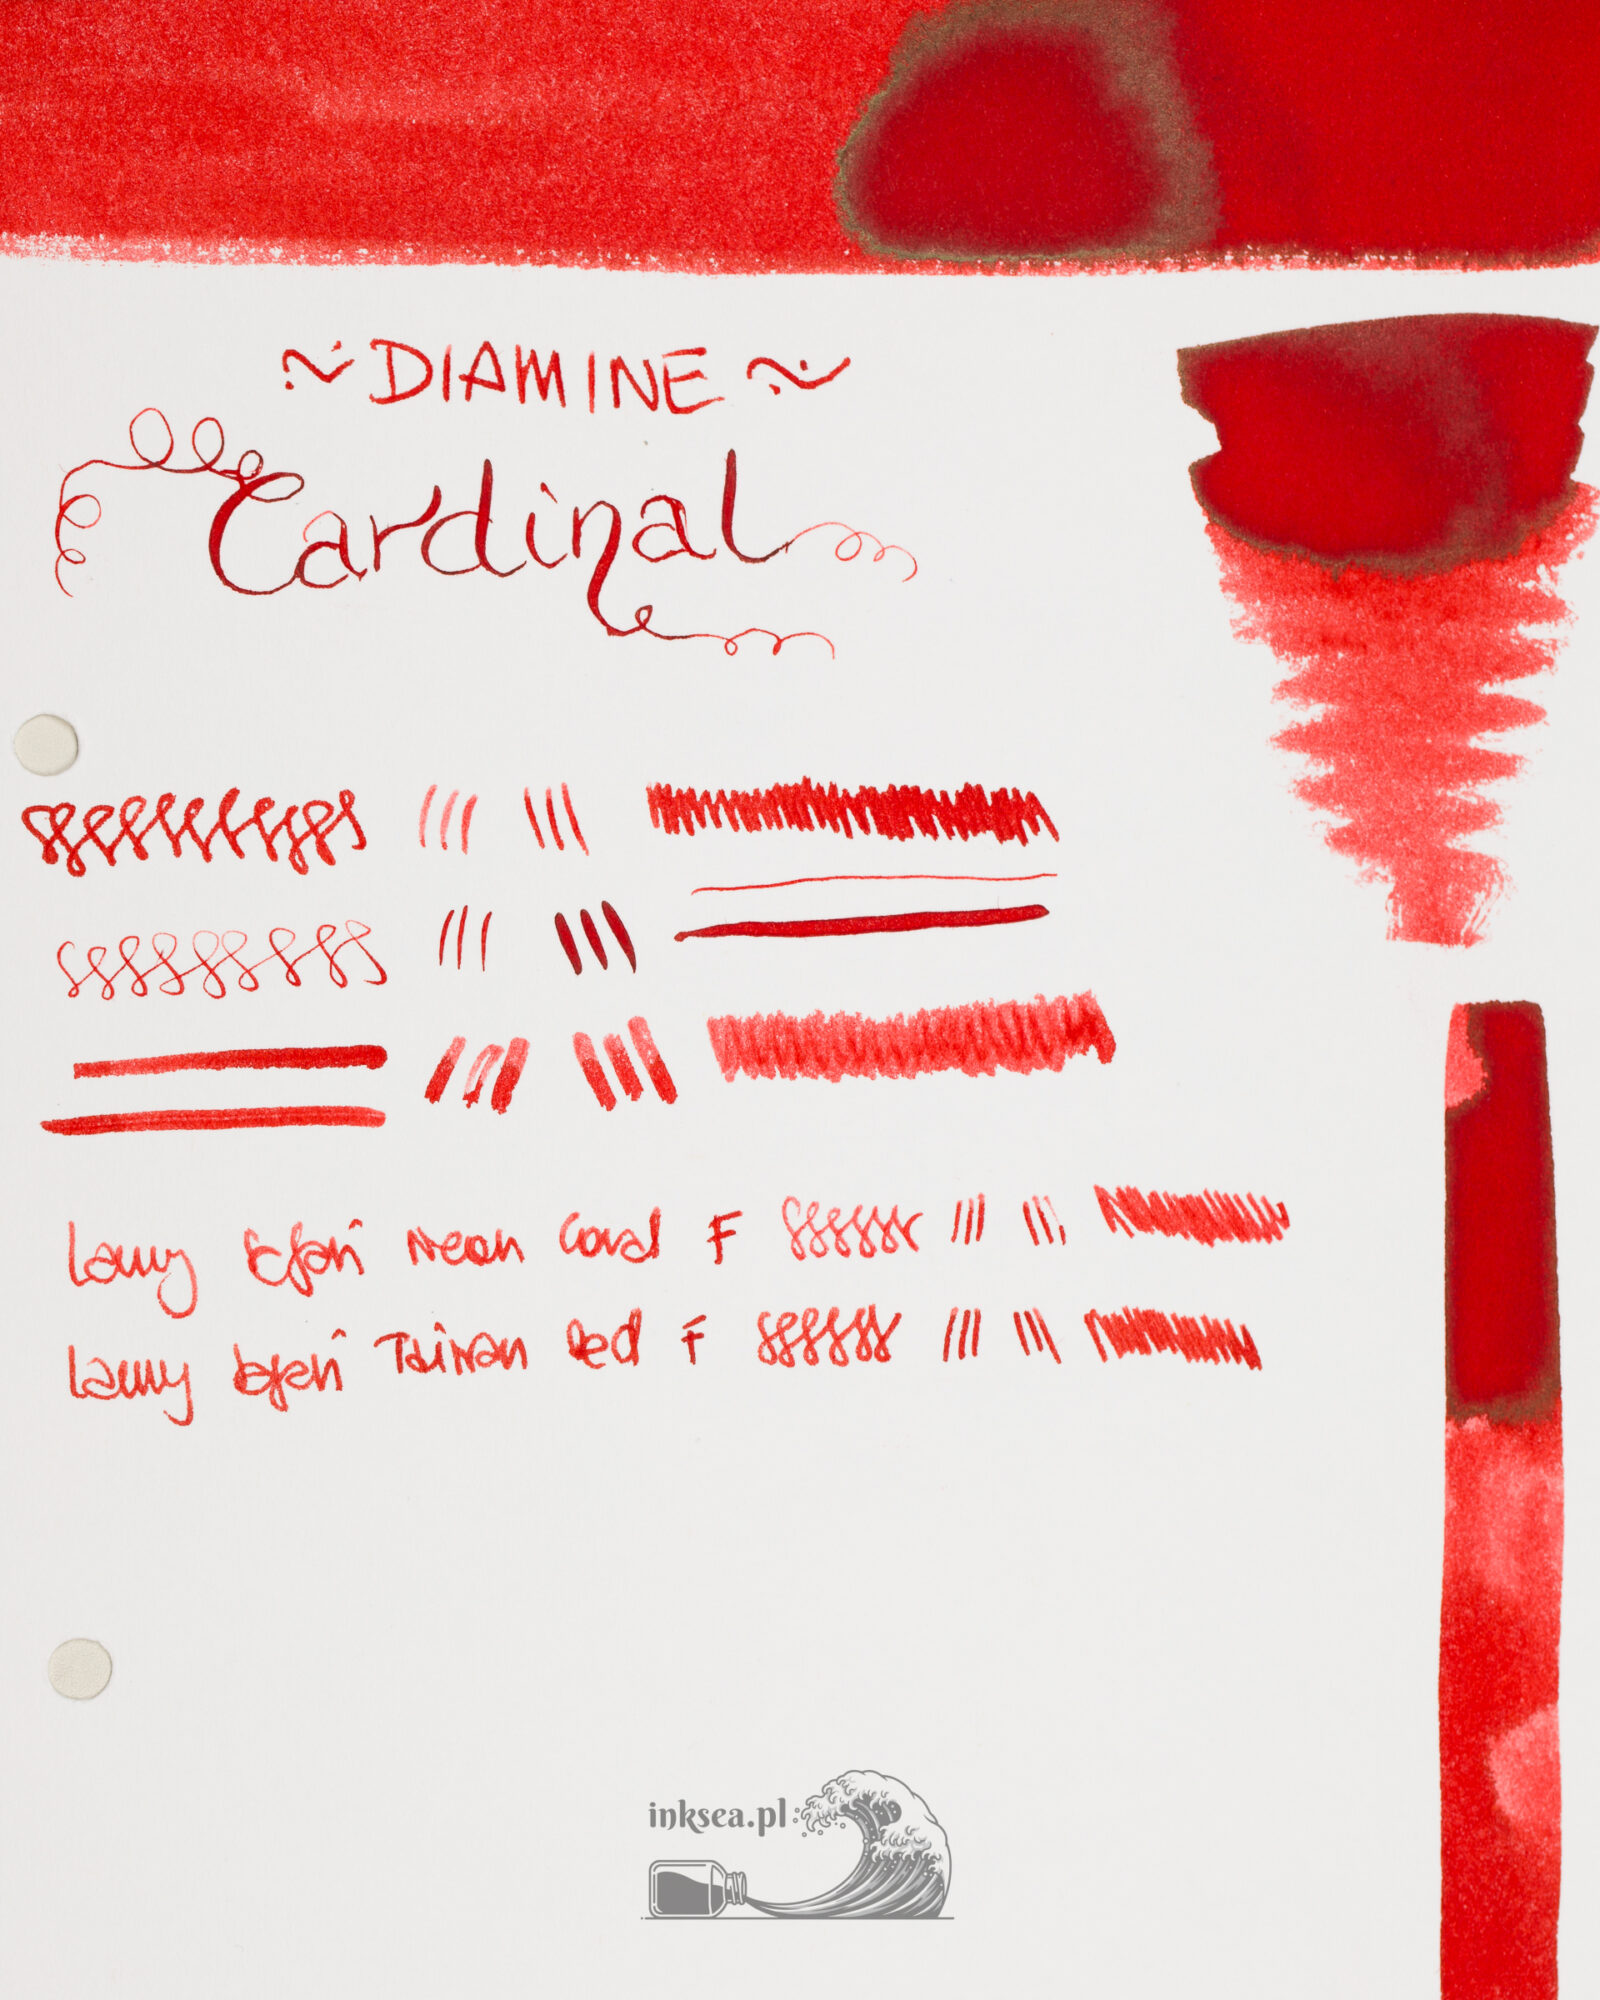 ~ DIAMINE ~
Cardinal
Lamy Safari Neon Coral F
Lamy Safari Taiwan Red F
inksea.pl